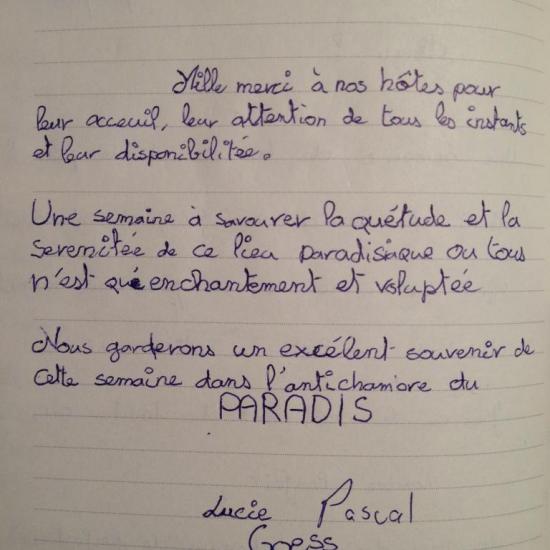 Mille merci à nos hôtes pour
leur acceuil, leur attention de tous les instants
et leur disponibilitée.
Une semaine à savourer la quétude et la
serenitée de ce lieu paradisiaque ou tous
n'est que enchantement et voluptée
Nous garderons un excélent souvenir de
cette semaine dans l'antichambre du
PARADIS
Lucie Pascal